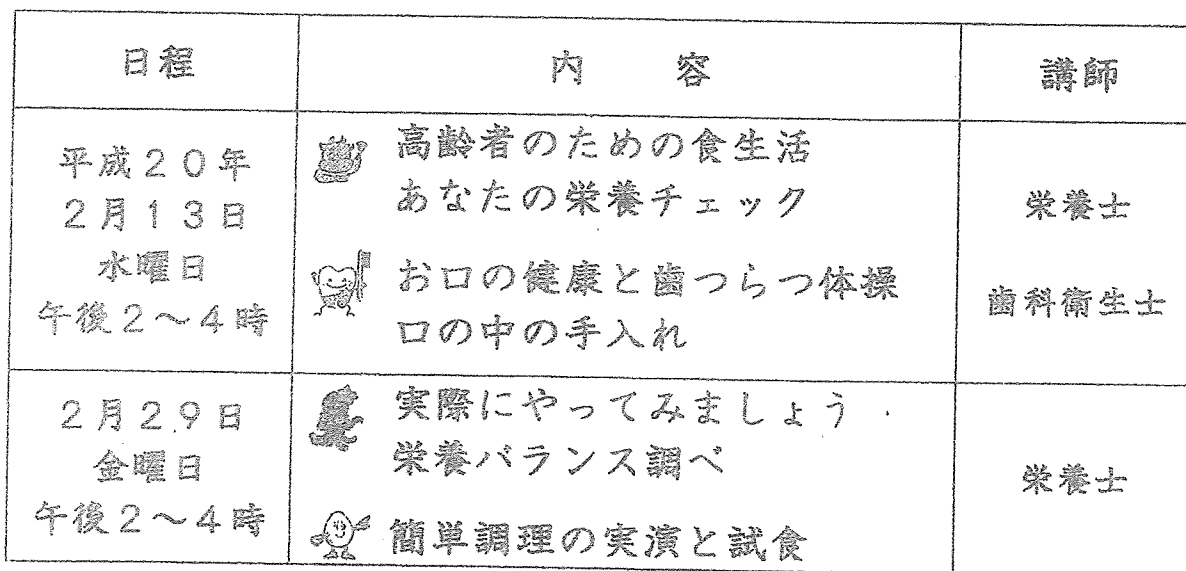 日程 内 容 講師
平成20年
2月13日
水曜日
午後2~4時
高齢者のための食生活
あなたの栄養チェック
お口の健康と歯つらつ体操
口の中の手入れ
栄養士
歯科衛生士
2月29日
金曜日
午後2~4時
実際にやってみましょう
栄養バランス調べ
簡単調理の実演と試食
栄養士